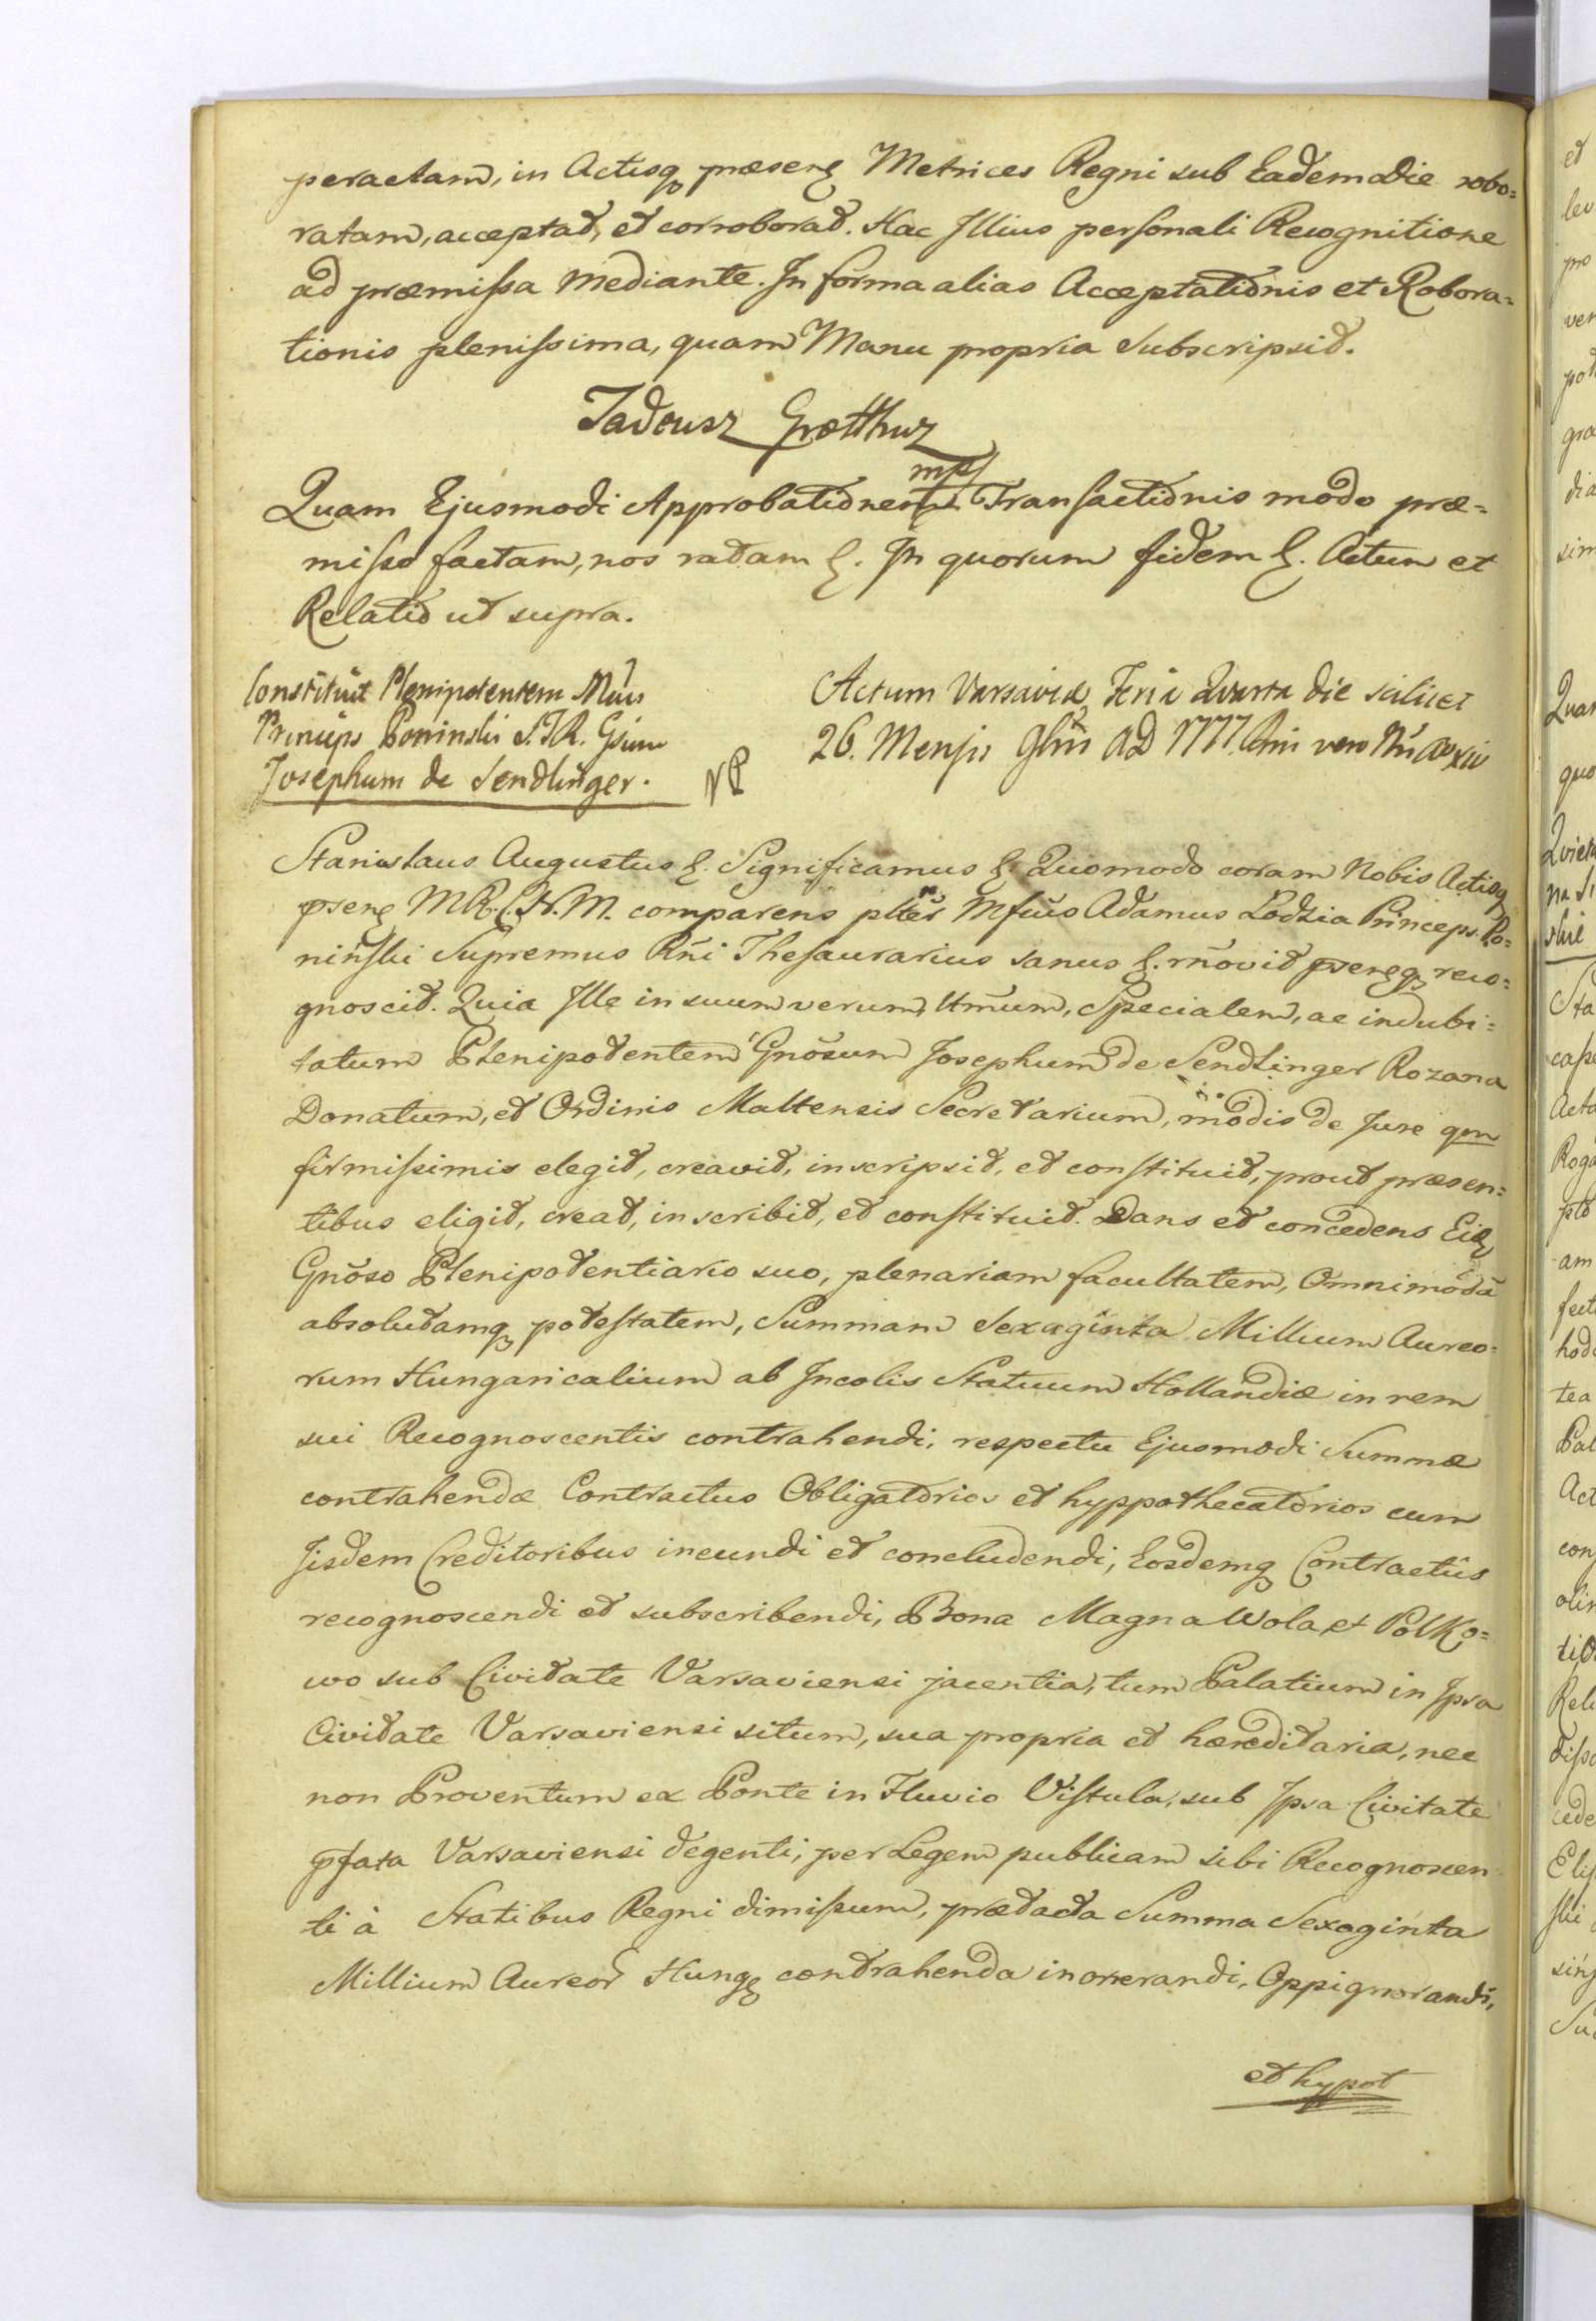 peractam, in Actisq præsen Metrices Regni sub Eadem Die robo=
ratam, acceptat, et corroborat. Hac Illius personali Recognitione
ad præmissa mediante. In forma alias Acceptationis et Robora=
tionis plenissima, quam Manu propria Subscripsit.
Tadeusz Grotthuz
mp
Quam Ejusmodi Approbationem Transactionis modo præ=
misso factam, nos ratam &. In quorum fidem &. Actum et
Relatio ut supra.
Constituit Plenipotentem
Princips Poninski S.T.R.
Josephum de Sendlinger.
Actum Varsaviæ Feria Quarta die scilicet
26. Mensis 9bris AD 1777.
Stanislaus Augustus &. Significamus &. Quomodo coram Nobis Actisq
psen M.R.C.N.M. comparens plter Mfcus Adamus Lodzia Princeps Po=
niński Supremus Rni Thesaurarius sanus &. rñovit psenq reco=
gnoscit. Quia Ille in suum verum, lttmum, Specialem, ac indubi=
tatum Plenipotentem Gnõsum Josephum de Sendlinger Rozana
Donatum, et Ordinis Maltensis Secretarium, modis de Jure qm
firmissimis elegit, creavit, inscripsit, et constituit, prout præsen=
tibus eligit, creat, inscribit, et constituit. Dans et concedens Eid
Gnõso Plenipotentiario suo, plenariam facultatem, Omnimodã
absolutamq potestatem, Summam Sexaginta Millium Aureo=
rum Hungaricalium ab Incolis Statuum Hollandiæ in rem
sui Recognoscentis contrahendi, respectu Ejusmodi Summæ
contrahendæ Contractus Obligatorios et hyppothecatorios cum
Iisdem Creditoribus ineundi et concludendi, Eosdemq Contractûs
recognoscendi et subscribendi, Bona Magna Wola et Polko=
wo sub Civitate Varsaviensi jacentia, tum Palatium in Ipsa
Civitate Varsaviensi situm, sua propria et hæreditaria, nec
non Proventum ex Ponte in Fluvio Vistula, sub Ipsa Civitate
pfata Varsaviensi degenti, per Legem publicam sibi Recognoscen
ti à Statibus Regni dimissum, prætacta Summa Sexaginta
Millium Aureor Hung contrahenda inonerandi, Oppignorandi,
et hypot